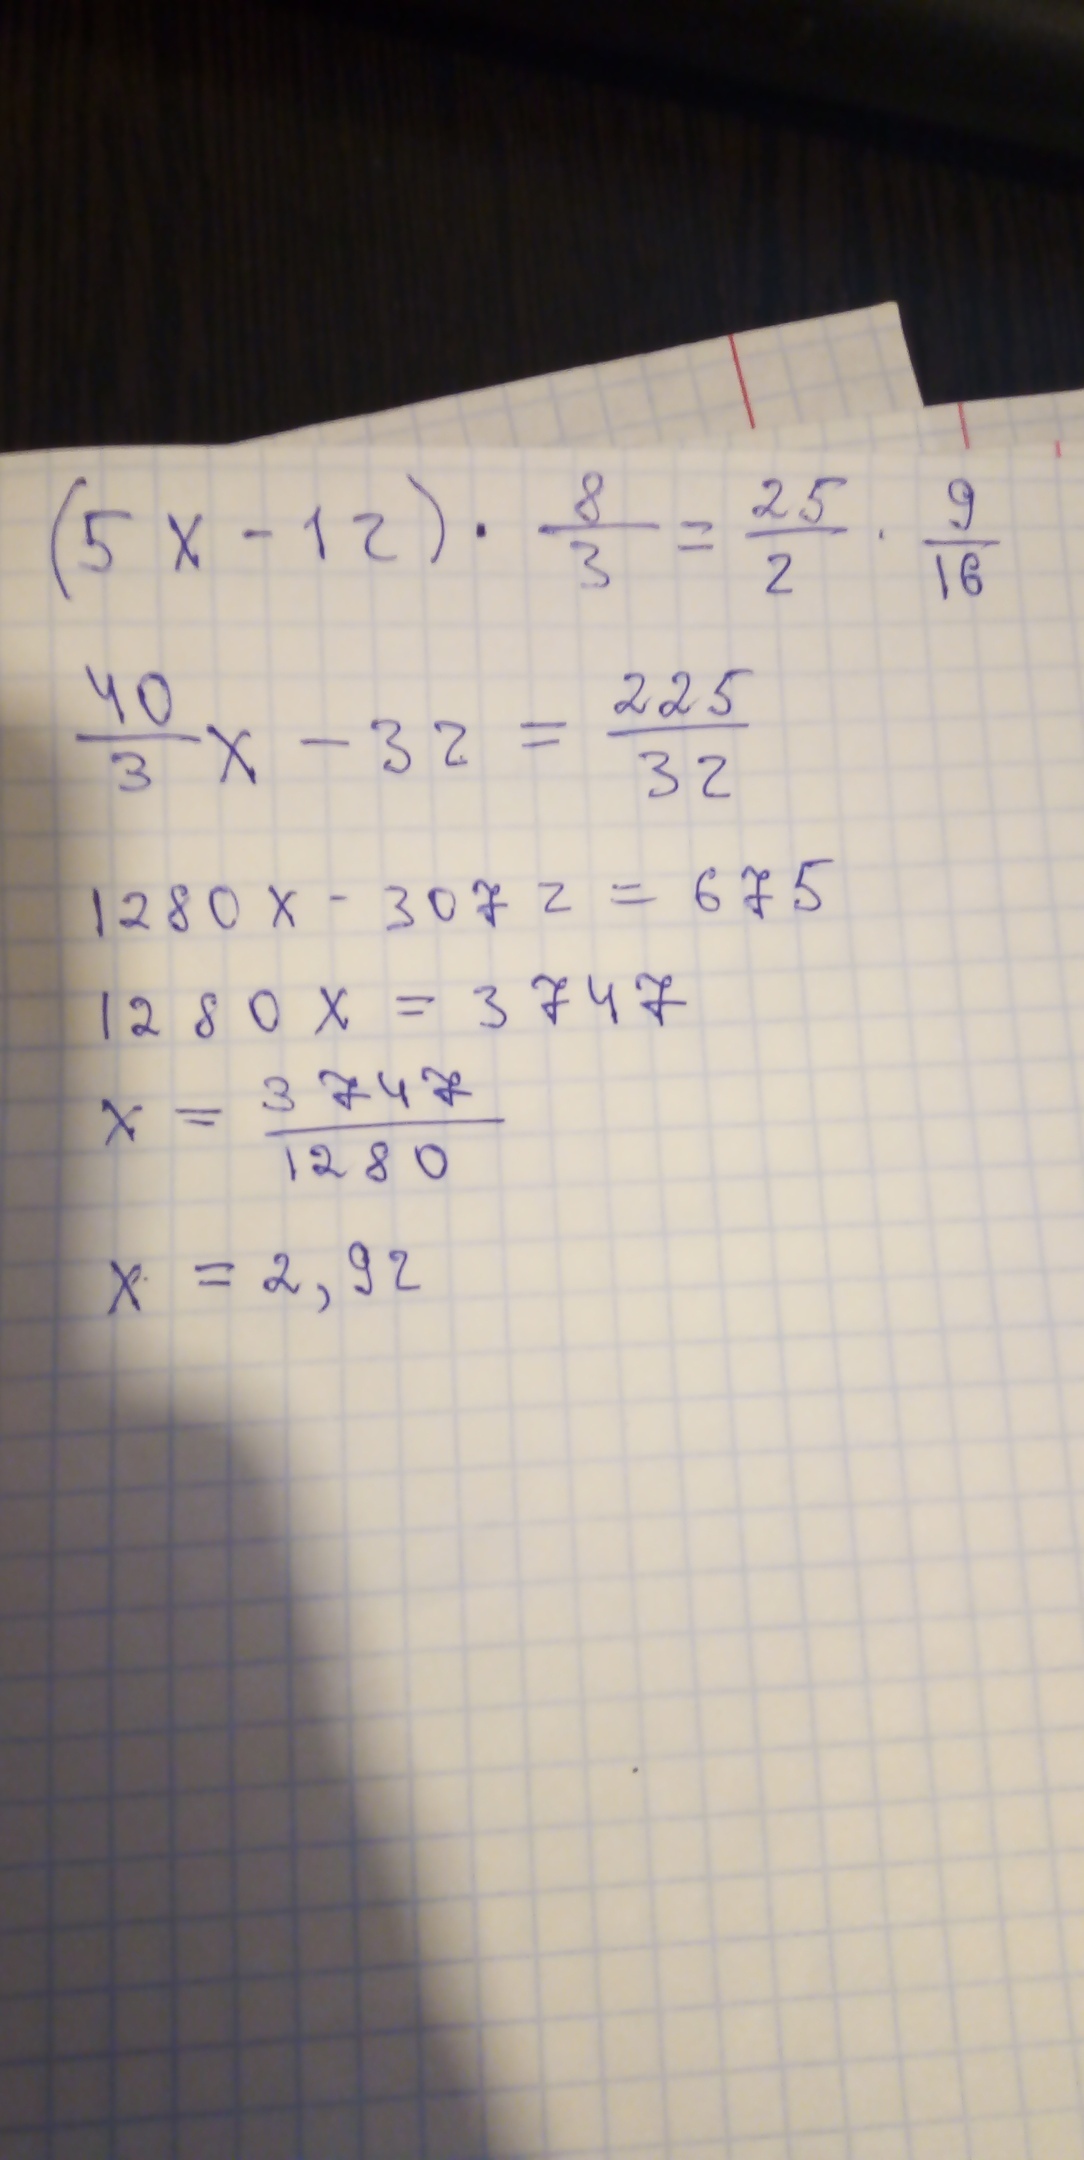 (5x - 12) · 8/3 = 25/2 · 9/16
40/3 x - 32 = 225/32
1280x - 3072 = 675
1280x = 3747
x = 3747/1280
x = 2,92